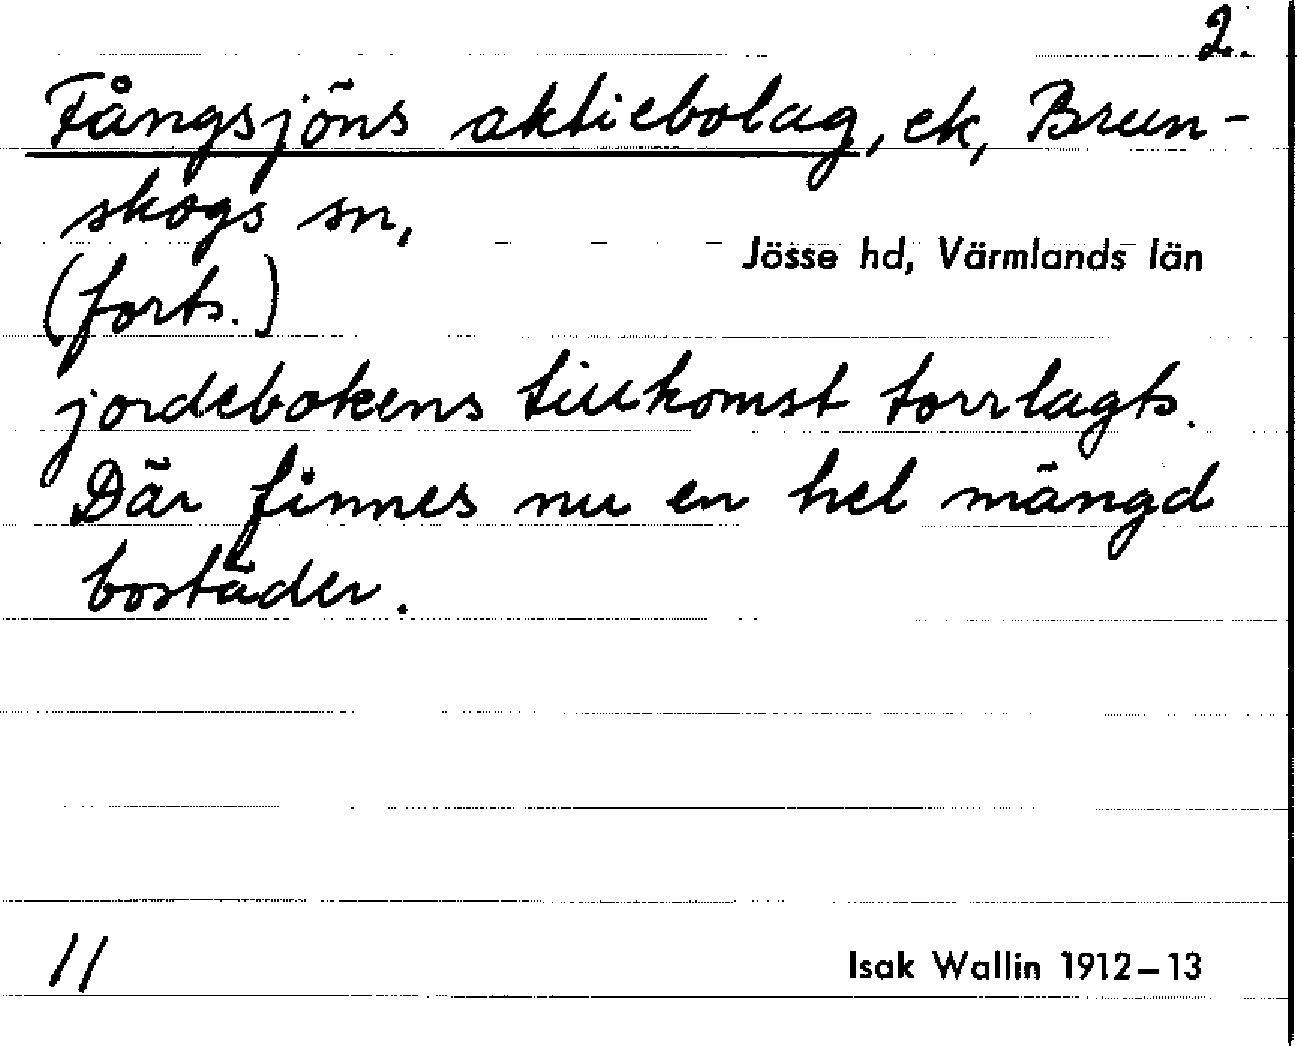 2.
Fångsjöns aktiebolag, ek, Brun-
skogs sn,
Jösse hd, Värmlands län
(forts.)
jordebokens tillkomst torrlagts.
Där finnes nu en hel mängd
bostäder.
11
Isak Wallin 1912–13